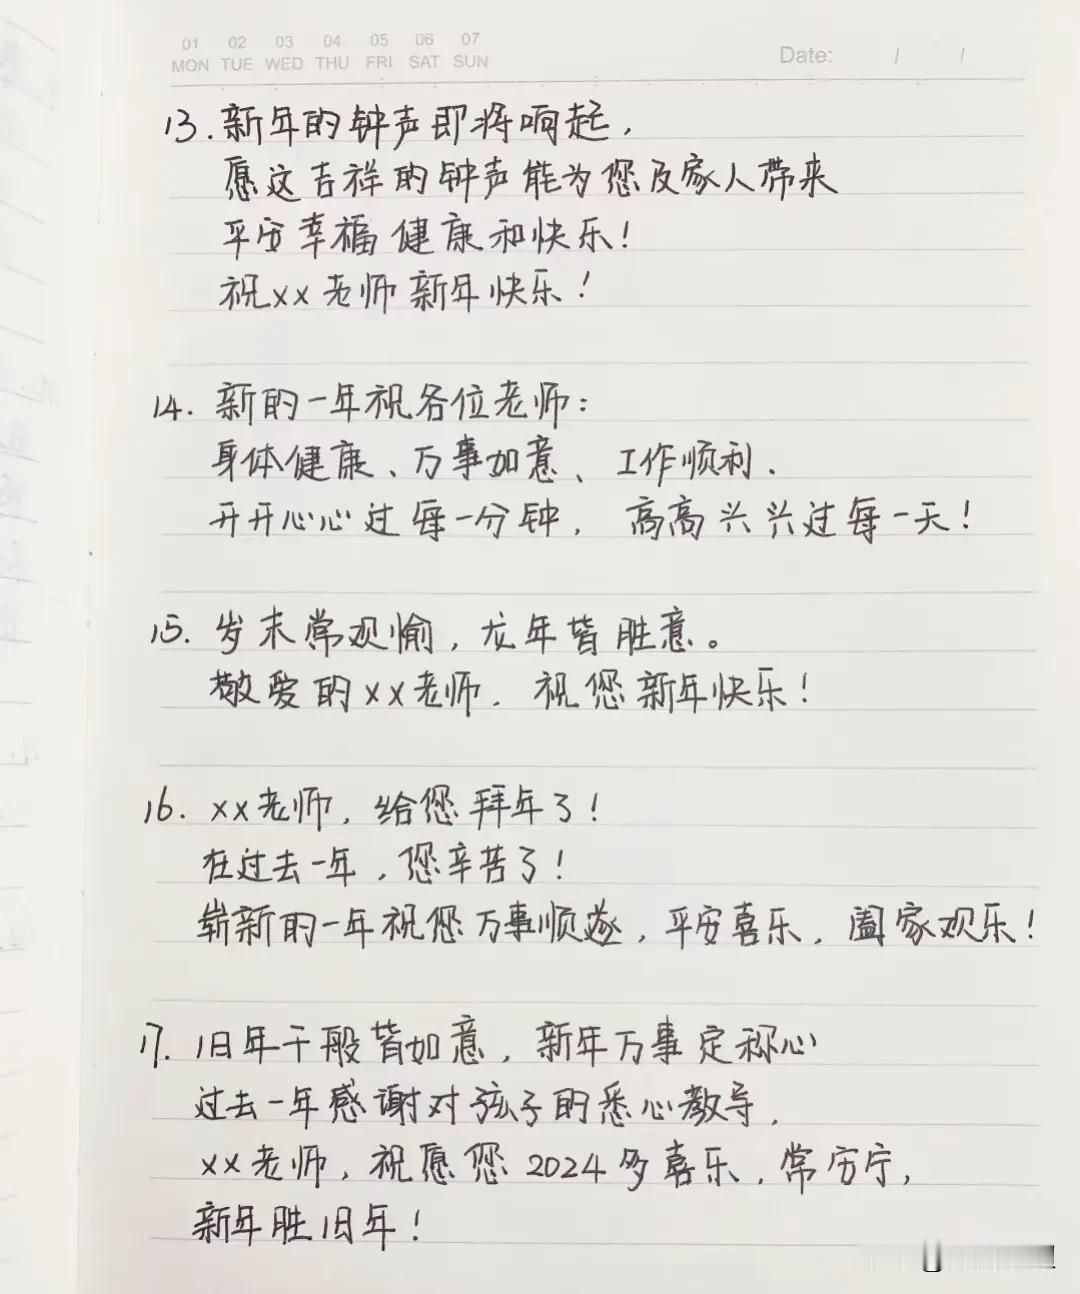 01 02 03 04 05 06 07
MON TUE WED THU FRI SAT SUN
Date: / /
13.新年的钟声即将响起,
愿这吉祥的钟声能为您及家人带来
平安幸福健康和快乐!
祝xx老师新年快乐!
14.新的一年祝各位老师:
身体健康、万事如意、工作顺利.
开开心心过每一分钟,高高兴兴过每一天!
15.岁末常观愉,龙年皆胜意。
敬爱的xx老师.祝您新年快乐!
16.xx老师,给您拜年了!
在过去一年,您辛苦了!
崭新的一年祝您万事顺遂,平安喜乐,阖家观乐!
17.旧年千般皆如意,新年万事定称心
过去一年感谢对孩子的悉心教导,
xx老师,祝愿您2024多喜乐,常安宁,
新年胜旧年!